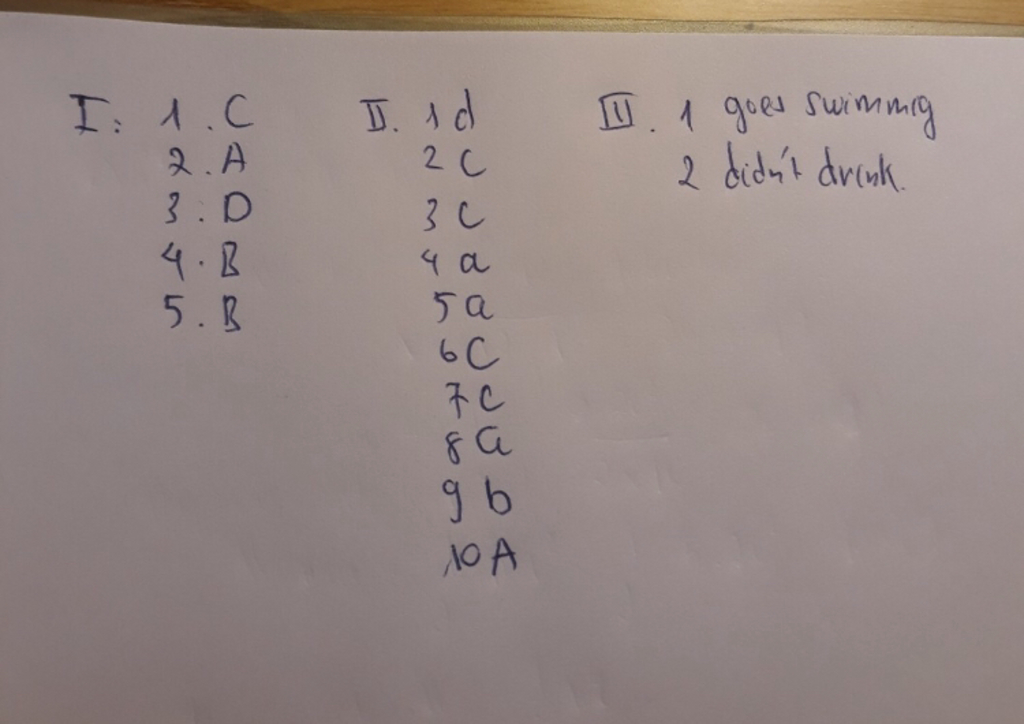 I: 1. C
2. A
3. D
4. B
5. B
II. 1 d
2 c
3 c
4 a
5 a
6 C
7 c
8 a
9 b
10 A
III. 1 goes swimmig
2 didn't drink.